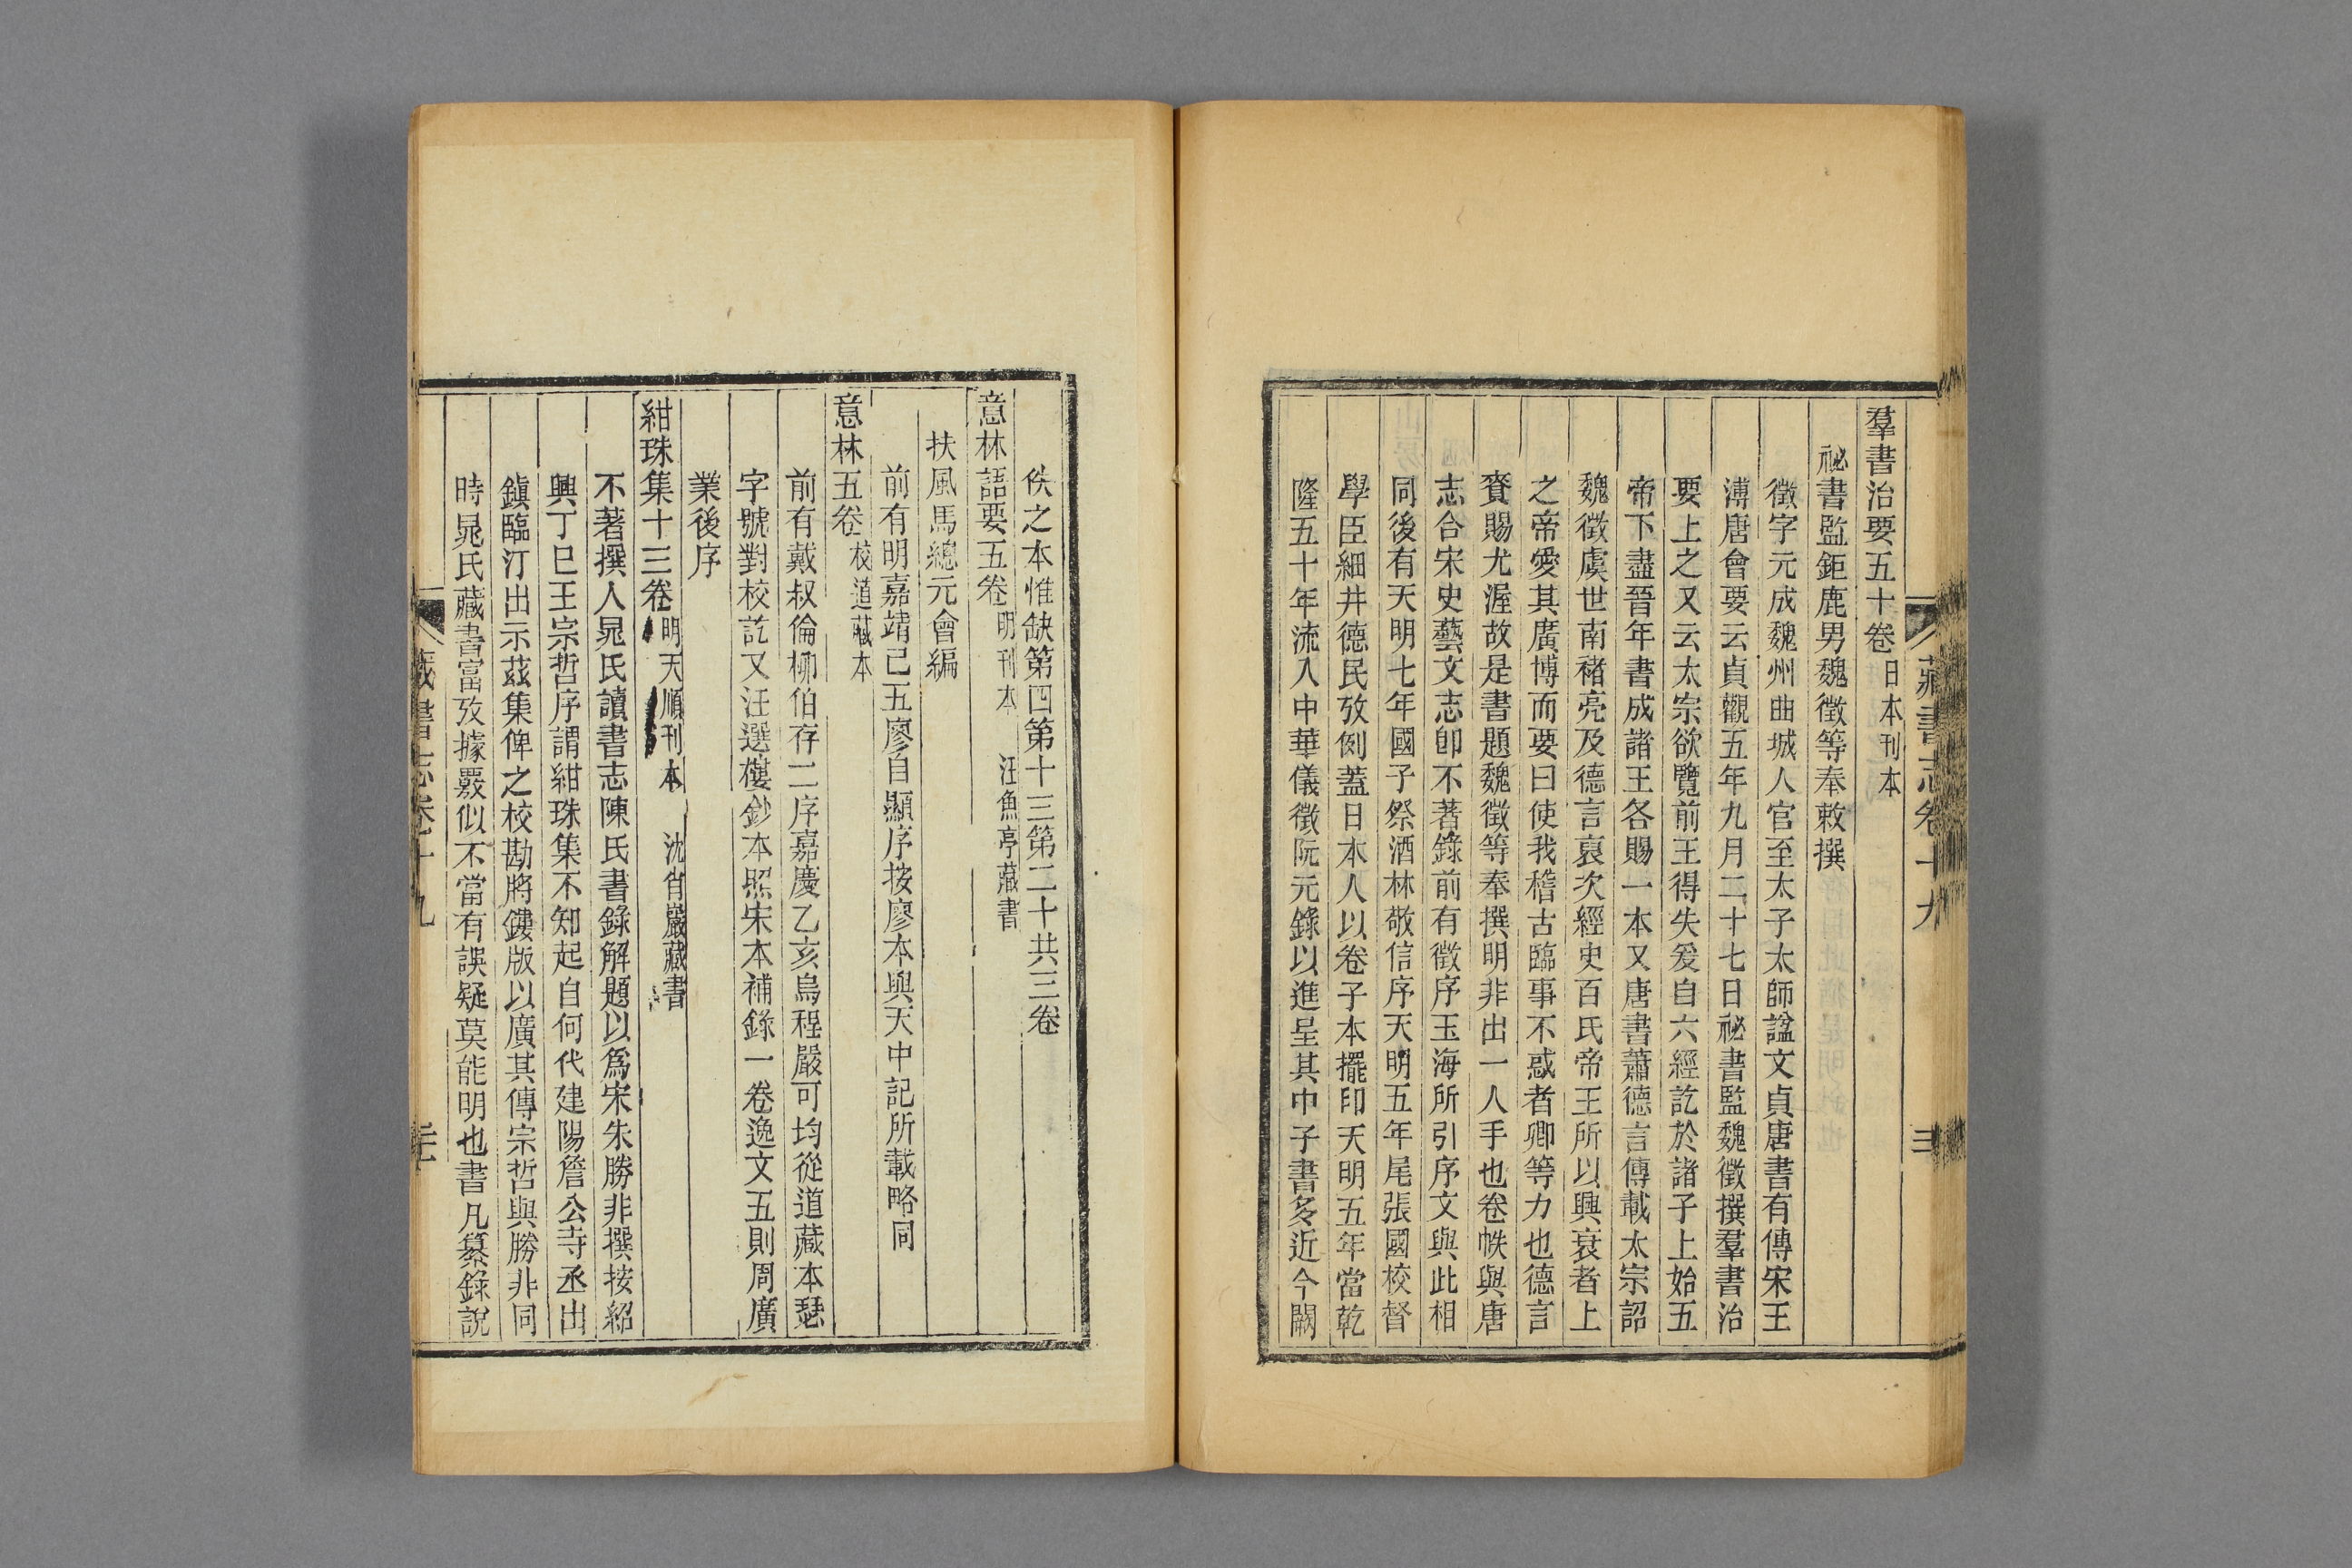 藏書志卷十九
羣書治要五十卷 日本刊本
祕書監鉅鹿男魏徵等奉敕撰
徵字元成魏州曲城人官至太子太師謚文貞唐書有傳宋王
溥唐會要云貞觀五年九月二十七日祕書監魏徵撰羣書治
要上之又云太宗欲覽前王得失爰自六經訖於諸子上始五
帝下盡晉年書成諸王各賜一本又唐書蕭德言傳載太宗詔
魏徵虞世南褚亮及德言裒次經史百氏帝王所以興衰者上
之帝愛其廣博而要曰使我稽古臨事不惑者卿等力也德言
賚賜尤渥故是書題魏徵等奉撰明非出一人手也卷帙與唐
志合宋史藝文志卽不著錄前有徵序玉海所引序文與此相
同後有天明七年國子祭酒林敬信序天明五年尾張國校督
學臣細井德民攷例蓋日本人以卷子本擺印天明五年當乾
隆五十年流入中華儀徵阮元錄以進呈其中子書多近今闕
佚之本惟缺第四第十三第二十共三卷
意林語要五卷 明刊本 汪魚亭藏書
扶風馬總元會編
前有明嘉靖己五廖自顯序按廖本與天中記所載略同
意林五卷 校道藏本
前有戴叔倫柳伯存二序嘉慶乙亥烏程嚴可均從道藏本瑟
字號對校訖又汪選樓鈔本照宋本補錄一卷逸文五則周廣
業後序
紺珠集十三卷 明天順刊本 沈肖巖藏書
不著撰人晁氏讀書志陳氏書錄解題以爲宋朱勝非撰按紹
興丁巳王宗哲序謂紺珠集不知起自何代建陽詹公寺丞出
鎭臨汀出示茲集俾之校勘將鏤版以廣其傳宗哲與勝非同
時晁氏藏書富攷據覈似不當有誤疑莫能明也書凡纂錄說
藏書志卷十九